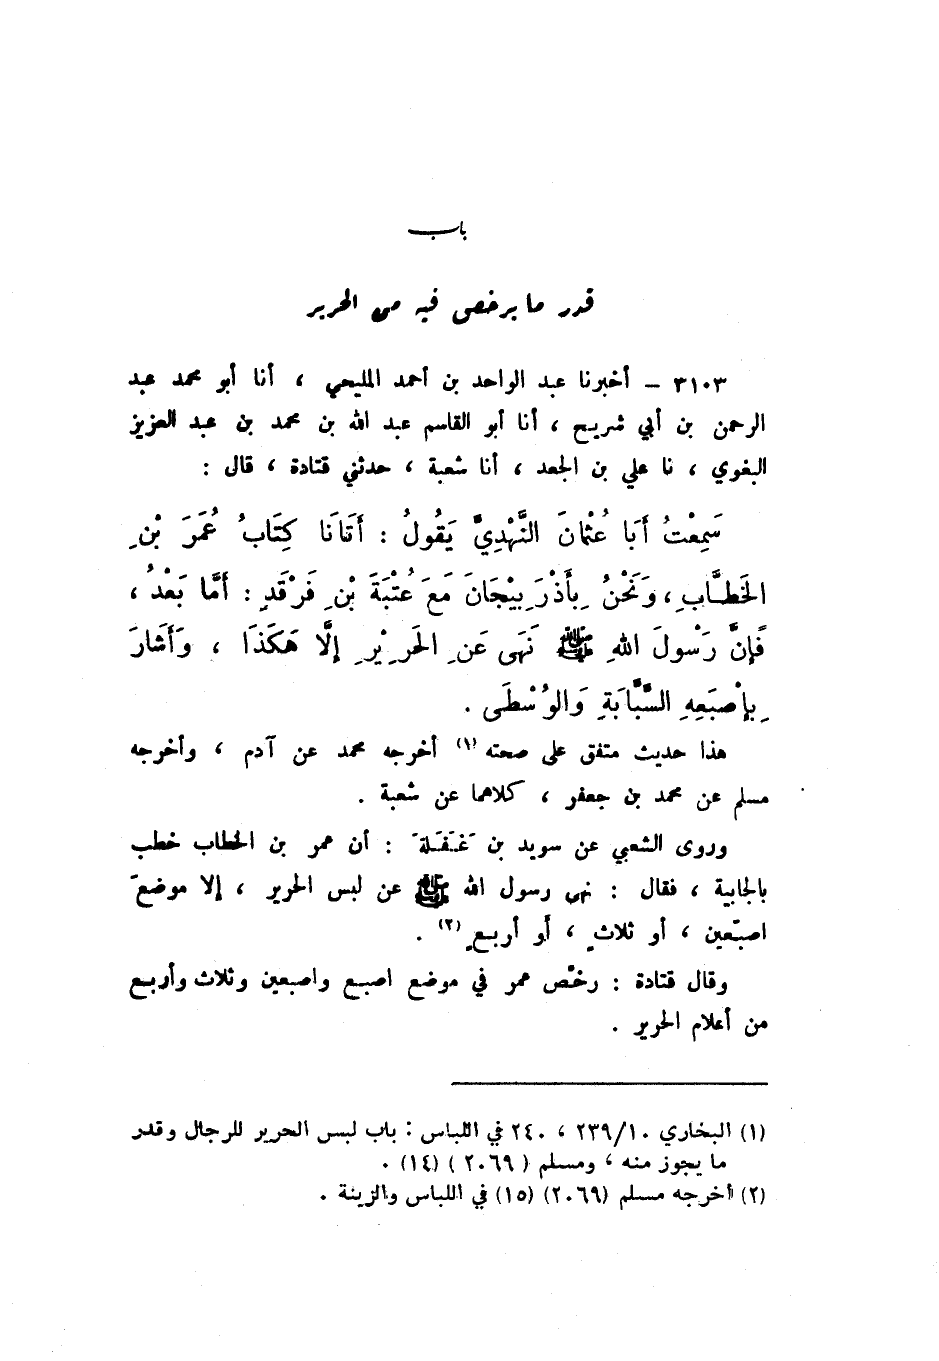 باب
قدر ما يرخص فيه من الحرير
٣١٠٣ – أخبرنا عبد الواحد بن أحمد المليحي ، أنا أبو محمد عبد
الرحمن بن أبي شريح ، أنا أبو القاسم عبد الله بن محمد بن عبد العزيز
البغوي ، نا علي بن الجعد ، أنا شعبة ، حدثني قتادة ، قال :
سَمِعْتُ أَبَا عُثْمَانَ النَّهْدِيَّ يَقُولُ : أَتَانَا كِتَابُ عُمَرَ بْنِ
الخَطَّابِ ، وَنَحْنُ بِأَذْرَبِيْجَانَ مَعَ عُتْبَةَ بْنِ فَرْقَدٍ : أَمَّا بَعْدُ ،
فَإِنَّ رَسُولَ اللهِ ﷺ نَهَى عَنِ الحَرِيْرِ إِلَّا هَكَذَا ، وَأَشَارَ
بِإِصْبَعِهِ السَّبَّابَةِ وَالوُسْطَى .
هذا حديث متفق على صحته (١) أخرجه محمد عن آدم ، وأخرجه
مسلم عن محمد بن جعفر ، كلاهما عن شعبة .
وروى الشعبي عن سويد بن غَفَلَةَ : أن عمر بن الخطاب خطب
بالجابية ، فقال : نهى رسول الله ﷺ عن لبس الحرير ، إلا موضعَ
اصبَعين ، أو ثلاثٍ ، أو أربعٍ (٢) .
وقال قتادة : رخَّص عمر في موضع اصبع واصبعين وثلاث وأربع
من أعلام الحرير .
(١) البخاري ٢٣٩/١٠ ، ٢٤٠ في اللباس : باب لبس الحرير للرجال وقدر
ما يجوز منه ، ومسلم ( ٢٠٦٩ ) (١٤) .
(٢) أخرجه مسلم (٢٠٦٩) (١٥) في اللباس والزينة .